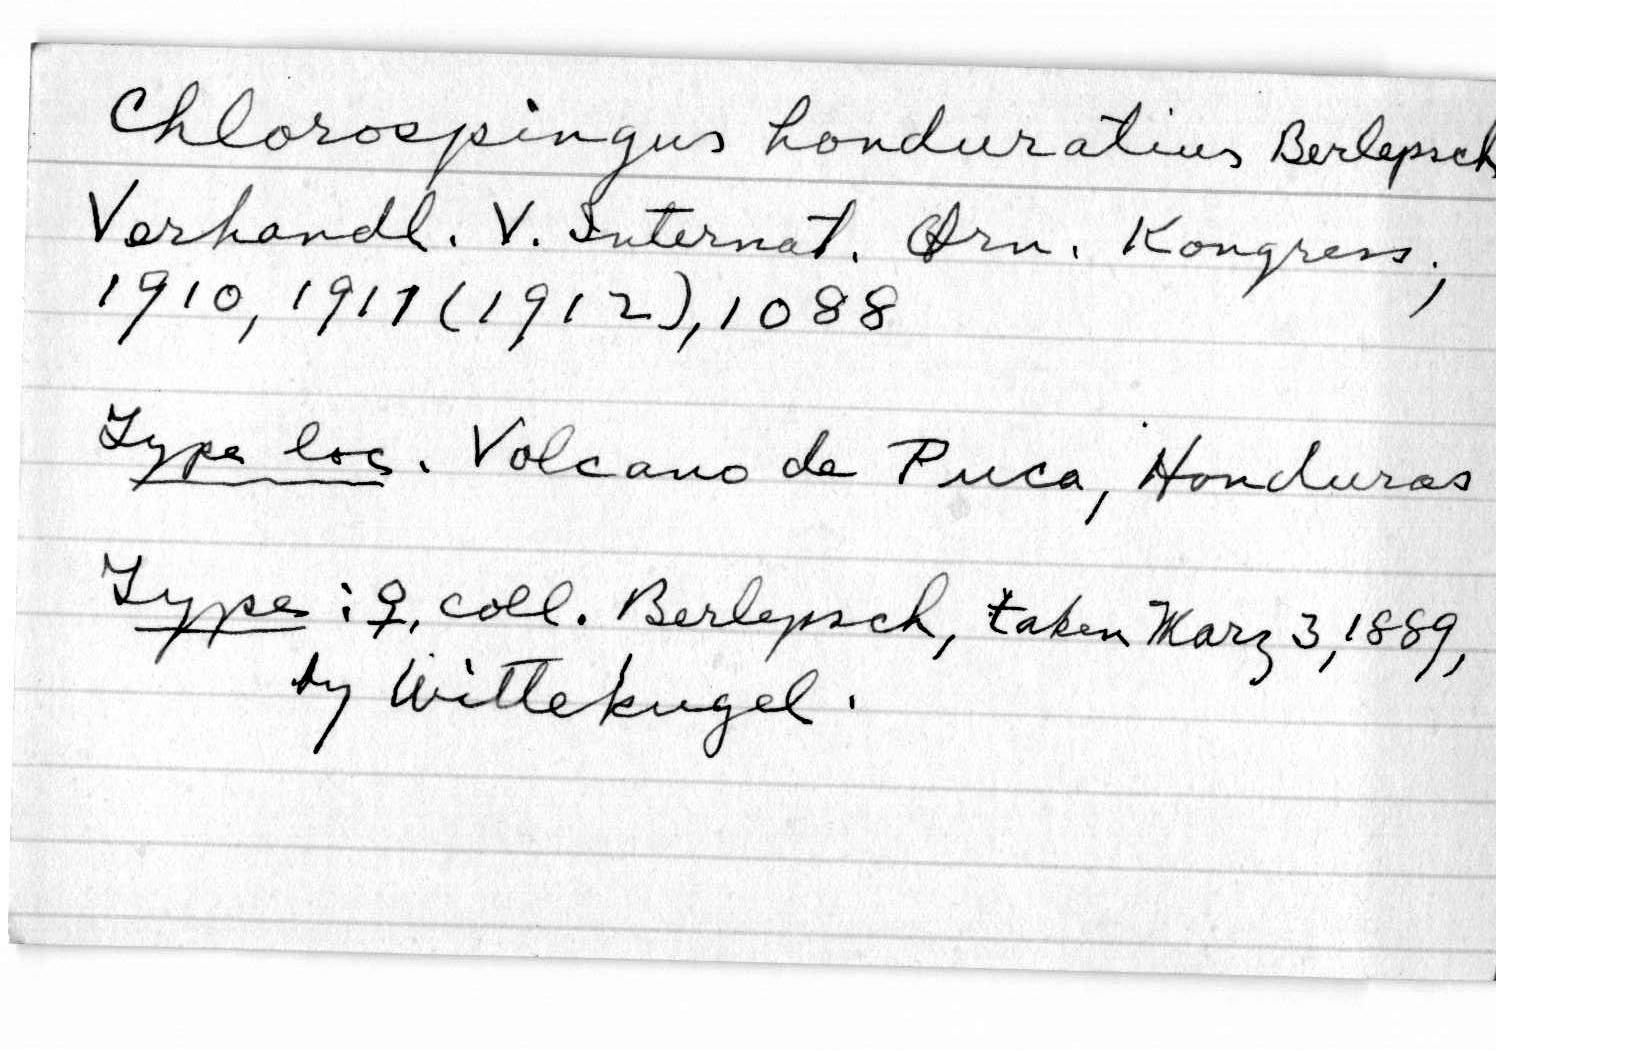 Chlorospingus honduratius Berlepsch
Verhandl. V. Internat. Orn. Kongress,
1910, 1911 (1912), 1088
Type loc. Volcano de Puca, Honduras
Type: ♀, coll. Berlepsch, taken Marz 3, 1889,
by Wittekugel.